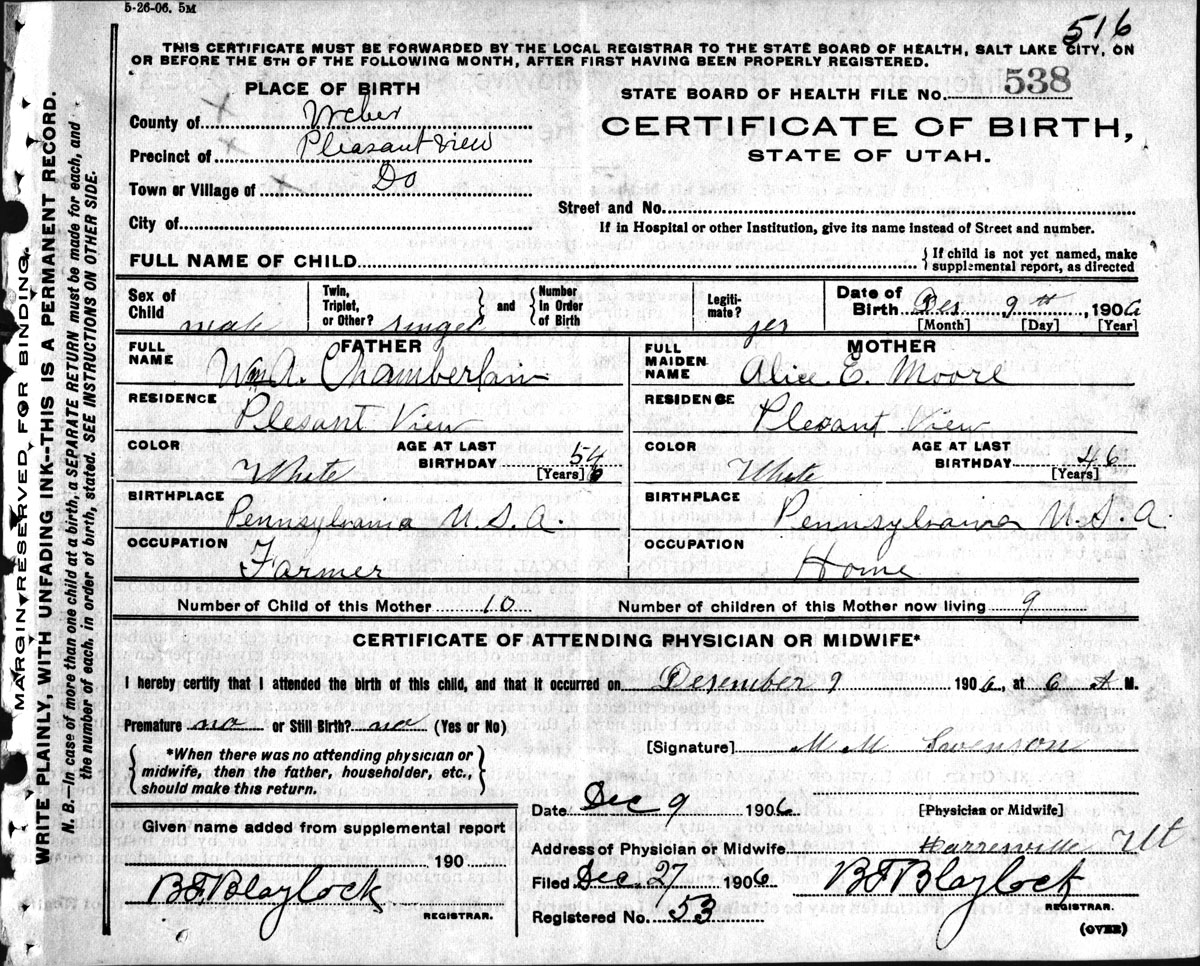 5-26-06. 5M
516
THIS CERTIFICATE MUST BE FORWARDED BY THE LOCAL REGISTRAR TO THE STATE BOARD OF HEALTH, SALT LAKE CITY, ON
OR BEFORE THE 5TH OF THE FOLLOWING MONTH, AFTER FIRST HAVING BEEN PROPERLY REGISTERED.
PLACE OF BIRTH
STATE BOARD OF HEALTH FILE No. 538
County of Weber
CERTIFICATE OF BIRTH,
Precinct of Pleasant View
STATE OF UTAH.
Town or Village of Do
Street and No.
City of
If in Hospital or other Institution, give its name instead of Street and number.
FULL NAME OF CHILD
{ If child is not yet named, make
supplemental report, as directed
Sex of Child male
Twin, Triplet, or Other? singel
and { Number in Order of Birth
Legiti- mate? yes
Date of Birth Des 9th, 1906
[Month] [Day] [Year]
FATHER
FULL NAME Wm A. Chamberlain
RESIDENCE Plesant View
COLOR White
AGE AT LAST BIRTHDAY 54 [Years]
BIRTHPLACE Pennsylvania U.S.A.
OCCUPATION Farmer
MOTHER
FULL MAIDEN NAME Alice E. Moore
RESIDENCE Plesant View
COLOR White
AGE AT LAST BIRTHDAY 46 [Years]
BIRTHPLACE Pennsylvania U.S.A.
OCCUPATION Home
Number of Child of this Mother 10
Number of children of this Mother now living 9
CERTIFICATE OF ATTENDING PHYSICIAN OR MIDWIFE*
I hereby certify that I attended the birth of this child, and that it occurred on Desember 9 1906, at 6 A M.
Premature no or Still Birth? no (Yes or No)
{ *When there was no attending physician or
midwife, then the father, householder, etc.,
should make this return. }
[Signature] M M Swenson
Date Dec 9 1906
[Physician or Midwife]
Given name added from supplemental report
190
BF Blaylock
REGISTRAR.
Address of Physician or Midwife Harresville Ut
Filed Dec. 27 1906
BF Blaylock
REGISTRAR.
Registered No. 53
(OVER)
MARGIN RESERVED FOR BINDING.
WRITE PLAINLY, WITH UNFADING INK--THIS IS A PERMANENT RECORD.
N. B.--In case of more than one child at a birth, a SEPARATE RETURN must be made for each, and
the number of each, in order of birth, stated. SEE INSTRUCTIONS ON OTHER SIDE.